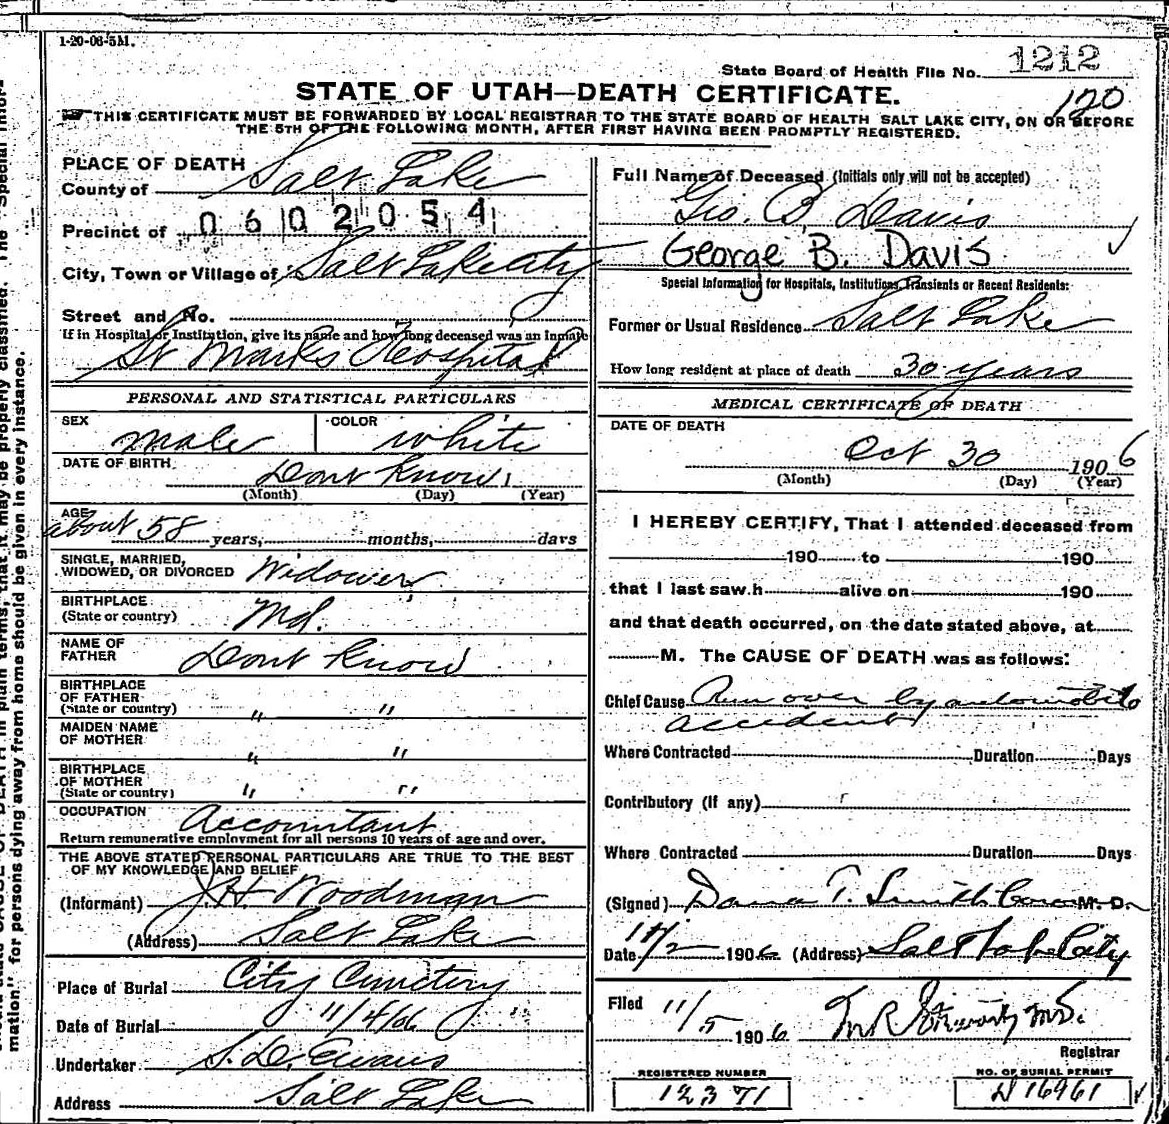 1-20-06-5M.
State Board of Health File No. 1212
STATE OF UTAH—DEATH CERTIFICATE.
120
THIS CERTIFICATE MUST BE FORWARDED BY LOCAL REGISTRAR TO THE STATE BOARD OF HEALTH SALT LAKE CITY, ON OR BEFORE
THE 5TH OF THE FOLLOWING MONTH, AFTER FIRST HAVING BEEN PROMPTLY REGISTERED.
PLACE OF DEATH
County of Salt Lake
Precinct of 0602054
City, Town or Village of Salt Lake City
Street and No.
If in Hospital or Institution, give its name and how long deceased was an inmate
St Marks Hospital
PERSONAL AND STATISTICAL PARTICULARS
SEX male COLOR white
DATE OF BIRTH Dont Know
(Month) (Day) (Year)
AGE about 58 years, months, days
SINGLE, MARRIED,
WIDOWED, OR DIVORCED Widower
BIRTHPLACE
(State or country) Md.
NAME OF
FATHER Dont Know
BIRTHPLACE
OF FATHER
(State or country) " "
MAIDEN NAME
OF MOTHER " "
BIRTHPLACE
OF MOTHER
(State or country) " "
OCCUPATION Accountant
Return remunerative employment for all persons 10 years of age and over.
THE ABOVE STATED PERSONAL PARTICULARS ARE TRUE TO THE BEST
OF MY KNOWLEDGE AND BELIEF
(Informant) J H Woodman
(Address) Salt Lake
Place of Burial City Cemetery
Date of Burial 11/4/06
Undertaker S. D. Evans
Address Salt Lake
Full Name of Deceased (Initials only will not be accepted)
Geo. B. Davis
George B. Davis
Special Information for Hospitals, Institutions, Transients or Recent Residents:
Former or Usual Residence Salt Lake
How long resident at place of death 30 years
MEDICAL CERTIFICATE OF DEATH
DATE OF DEATH
Oct 30 1906
(Month) (Day) (Year)
I HEREBY CERTIFY, That I attended deceased from
190 to 190
that I last saw h alive on 190
and that death occurred, on the date stated above, at
M. The CAUSE OF DEATH was as follows:
Chief Cause Run over by automobile
accident
Where Contracted Duration Days
Contributory (If any)
Where Contracted Duration Days
(Signed) Dana T. Smith M. D.
Date 11/2 1906 (Address) Salt Lake City
Filed 11/5 1906 M.D.
Registrar
REGISTERED NUMBER
12371
NO. OF BURIAL PERMIT
16961
mation" for persons dying away from home should be given in every instance.
DEATH in plain terms, that it may be properly classified. The "Special Infor-